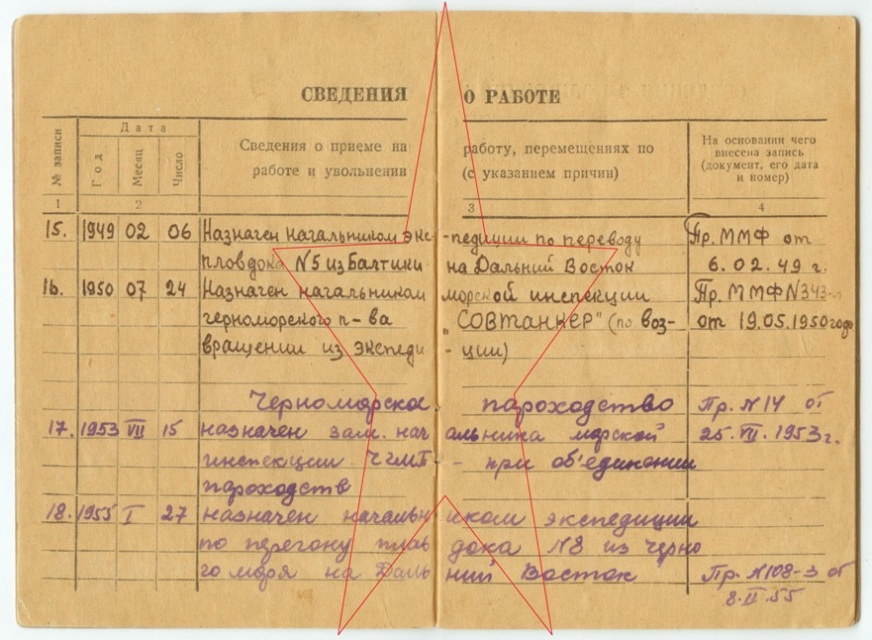 СВЕДЕНИЯ О РАБОТЕ
№ записи
Дата
Год
Месяц
Число
Сведения о приеме на работу, перемещениях по
работе и увольнении (с указанием причин)
На основании чего
внесена запись
(документ, его дата
и номер)
1 2 3 4
15. 1949 02 06 Назначен начальником экс- -педиции по переводу Пр. ММФ от
пловдока N5 из Балтики на Дальний Восток 6.02.49 г.
16. 1950 07 24 Назначен начальником морской инспекции Пр. ММФ N343
черноморского п-ва „СОВТАНКЕР" (по воз- от 19.05.1950 года
вращении из экспеди - ции)
Черноморское пароходство Пр. N14 от
17. 1953 VII 15 назначен зам. начальника морской 25.VII.1953 г.
инспекции ЧГМП - при об'единении
пароходств
18. 1955 I 27 назначен начальником экспедиции
по перегону плавдока N8 из черно
го моря на Дальний Восток Пр. N108-3 от
8.II.55